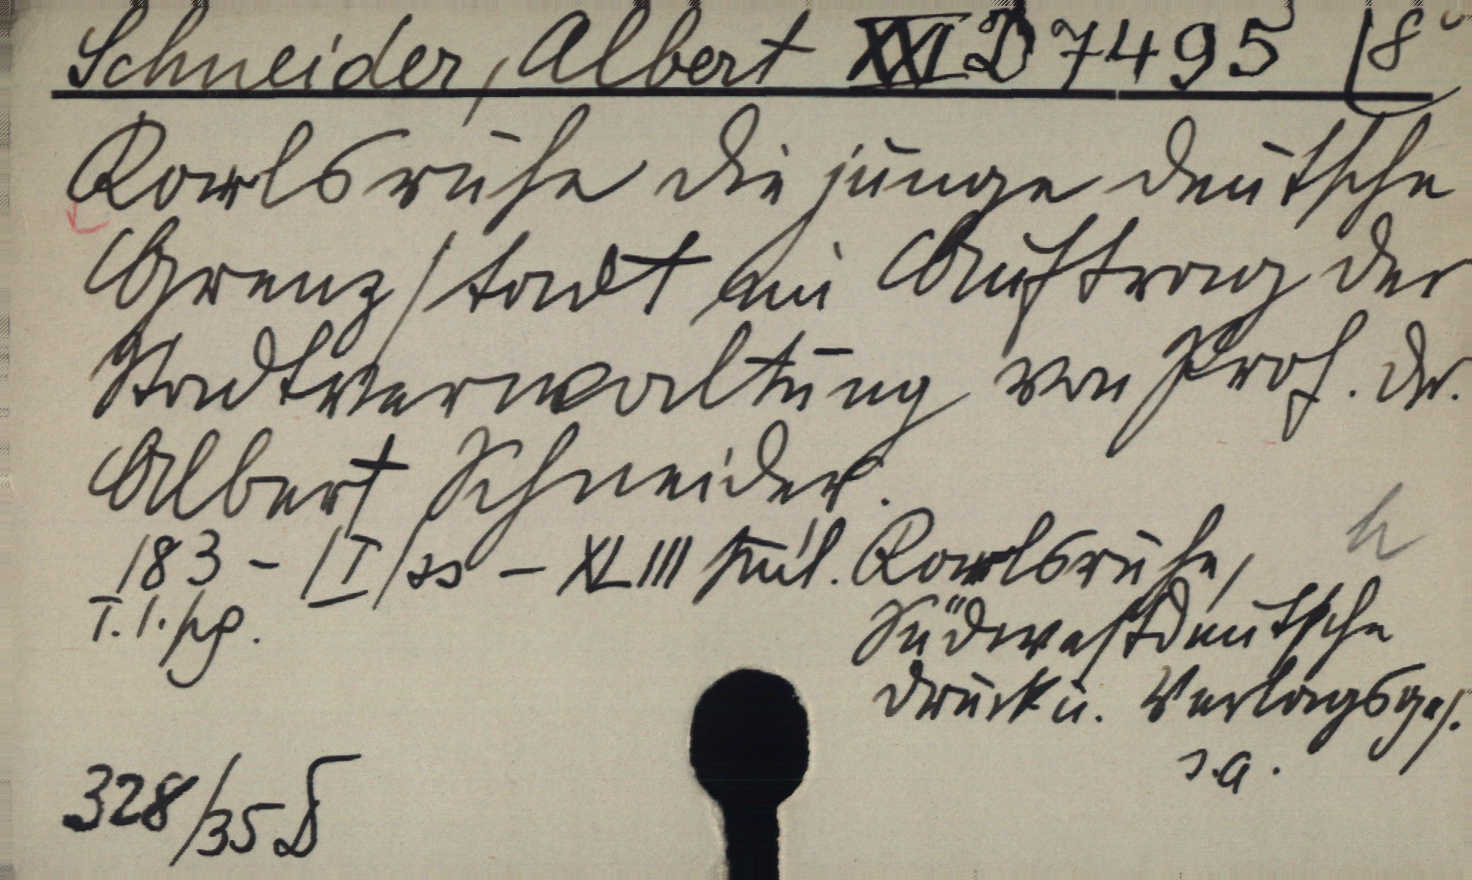 Schneider, Albert XXI D 7495 8°
Karlsruhe die junge deutsche
Grenzstadt im Auftrag der
Stadtverwaltung von Prof. Dr.
Albert Schneider.
183 - /I/ ss - XLIII Karlsruhe,
T. 1. Südwestdeutsche
Druck u. Verlagsges.
s.a.
328/35 D